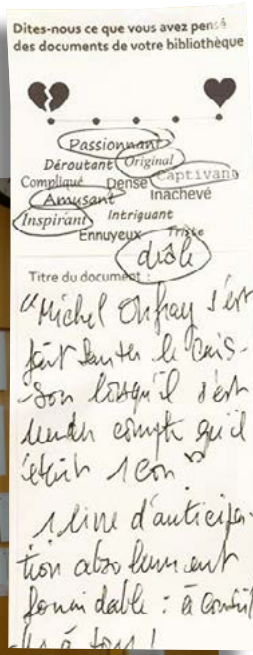 Dites-nous ce que vous avez pensé
des documents de votre bibliothèque
Passionnant
Déroutant Original
Compliqué Dense Captivant
Amusant Inachevé
Inspirant Intriguant
Ennuyeux Triste
drôle
Titre du document :
"Michel Onfray s'est
fait sauter le cais-
-son lorsqu'il s'est
rendu compte qu'il
était 1 con"
1 livre d'anticipa-
tion absolument
formidable : à conseil
ler à tous !